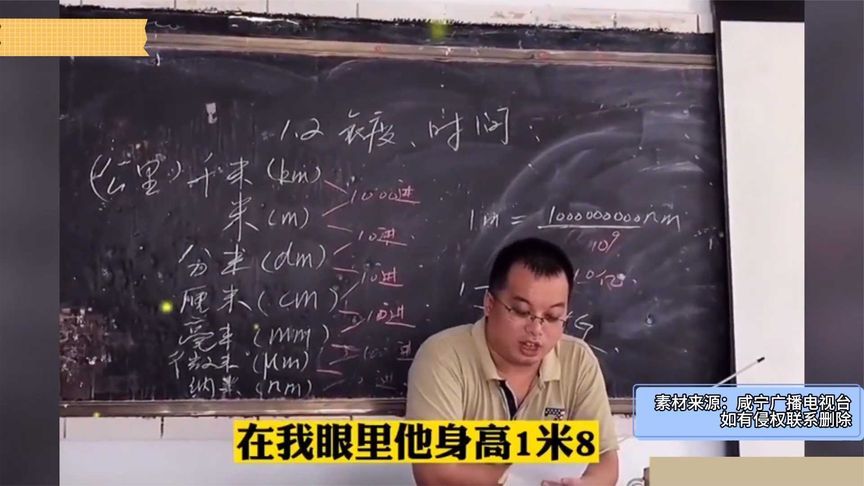 1.2 长度、时间:
(公里)千米(km)
1000进
米(m)
10进
分米(dm)
10进
厘米(cm)
10进
毫米(mm)
微米(μm)
纳米(nm)
1m = 1000000000nm
10⁹
10亿
素材来源：咸宁广播电视台
如有侵权联系删除
在我眼里他身高1米8